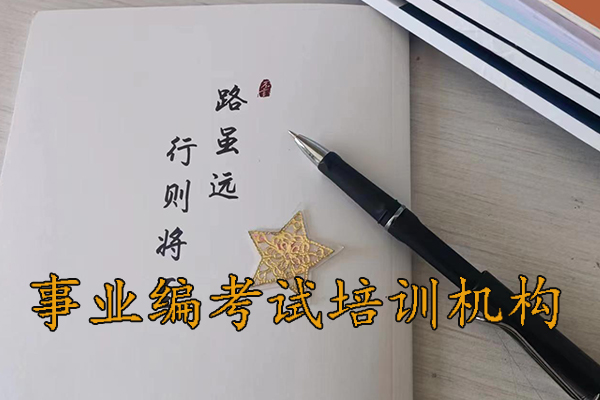 路虽远
行则将
事业编考试培训机构